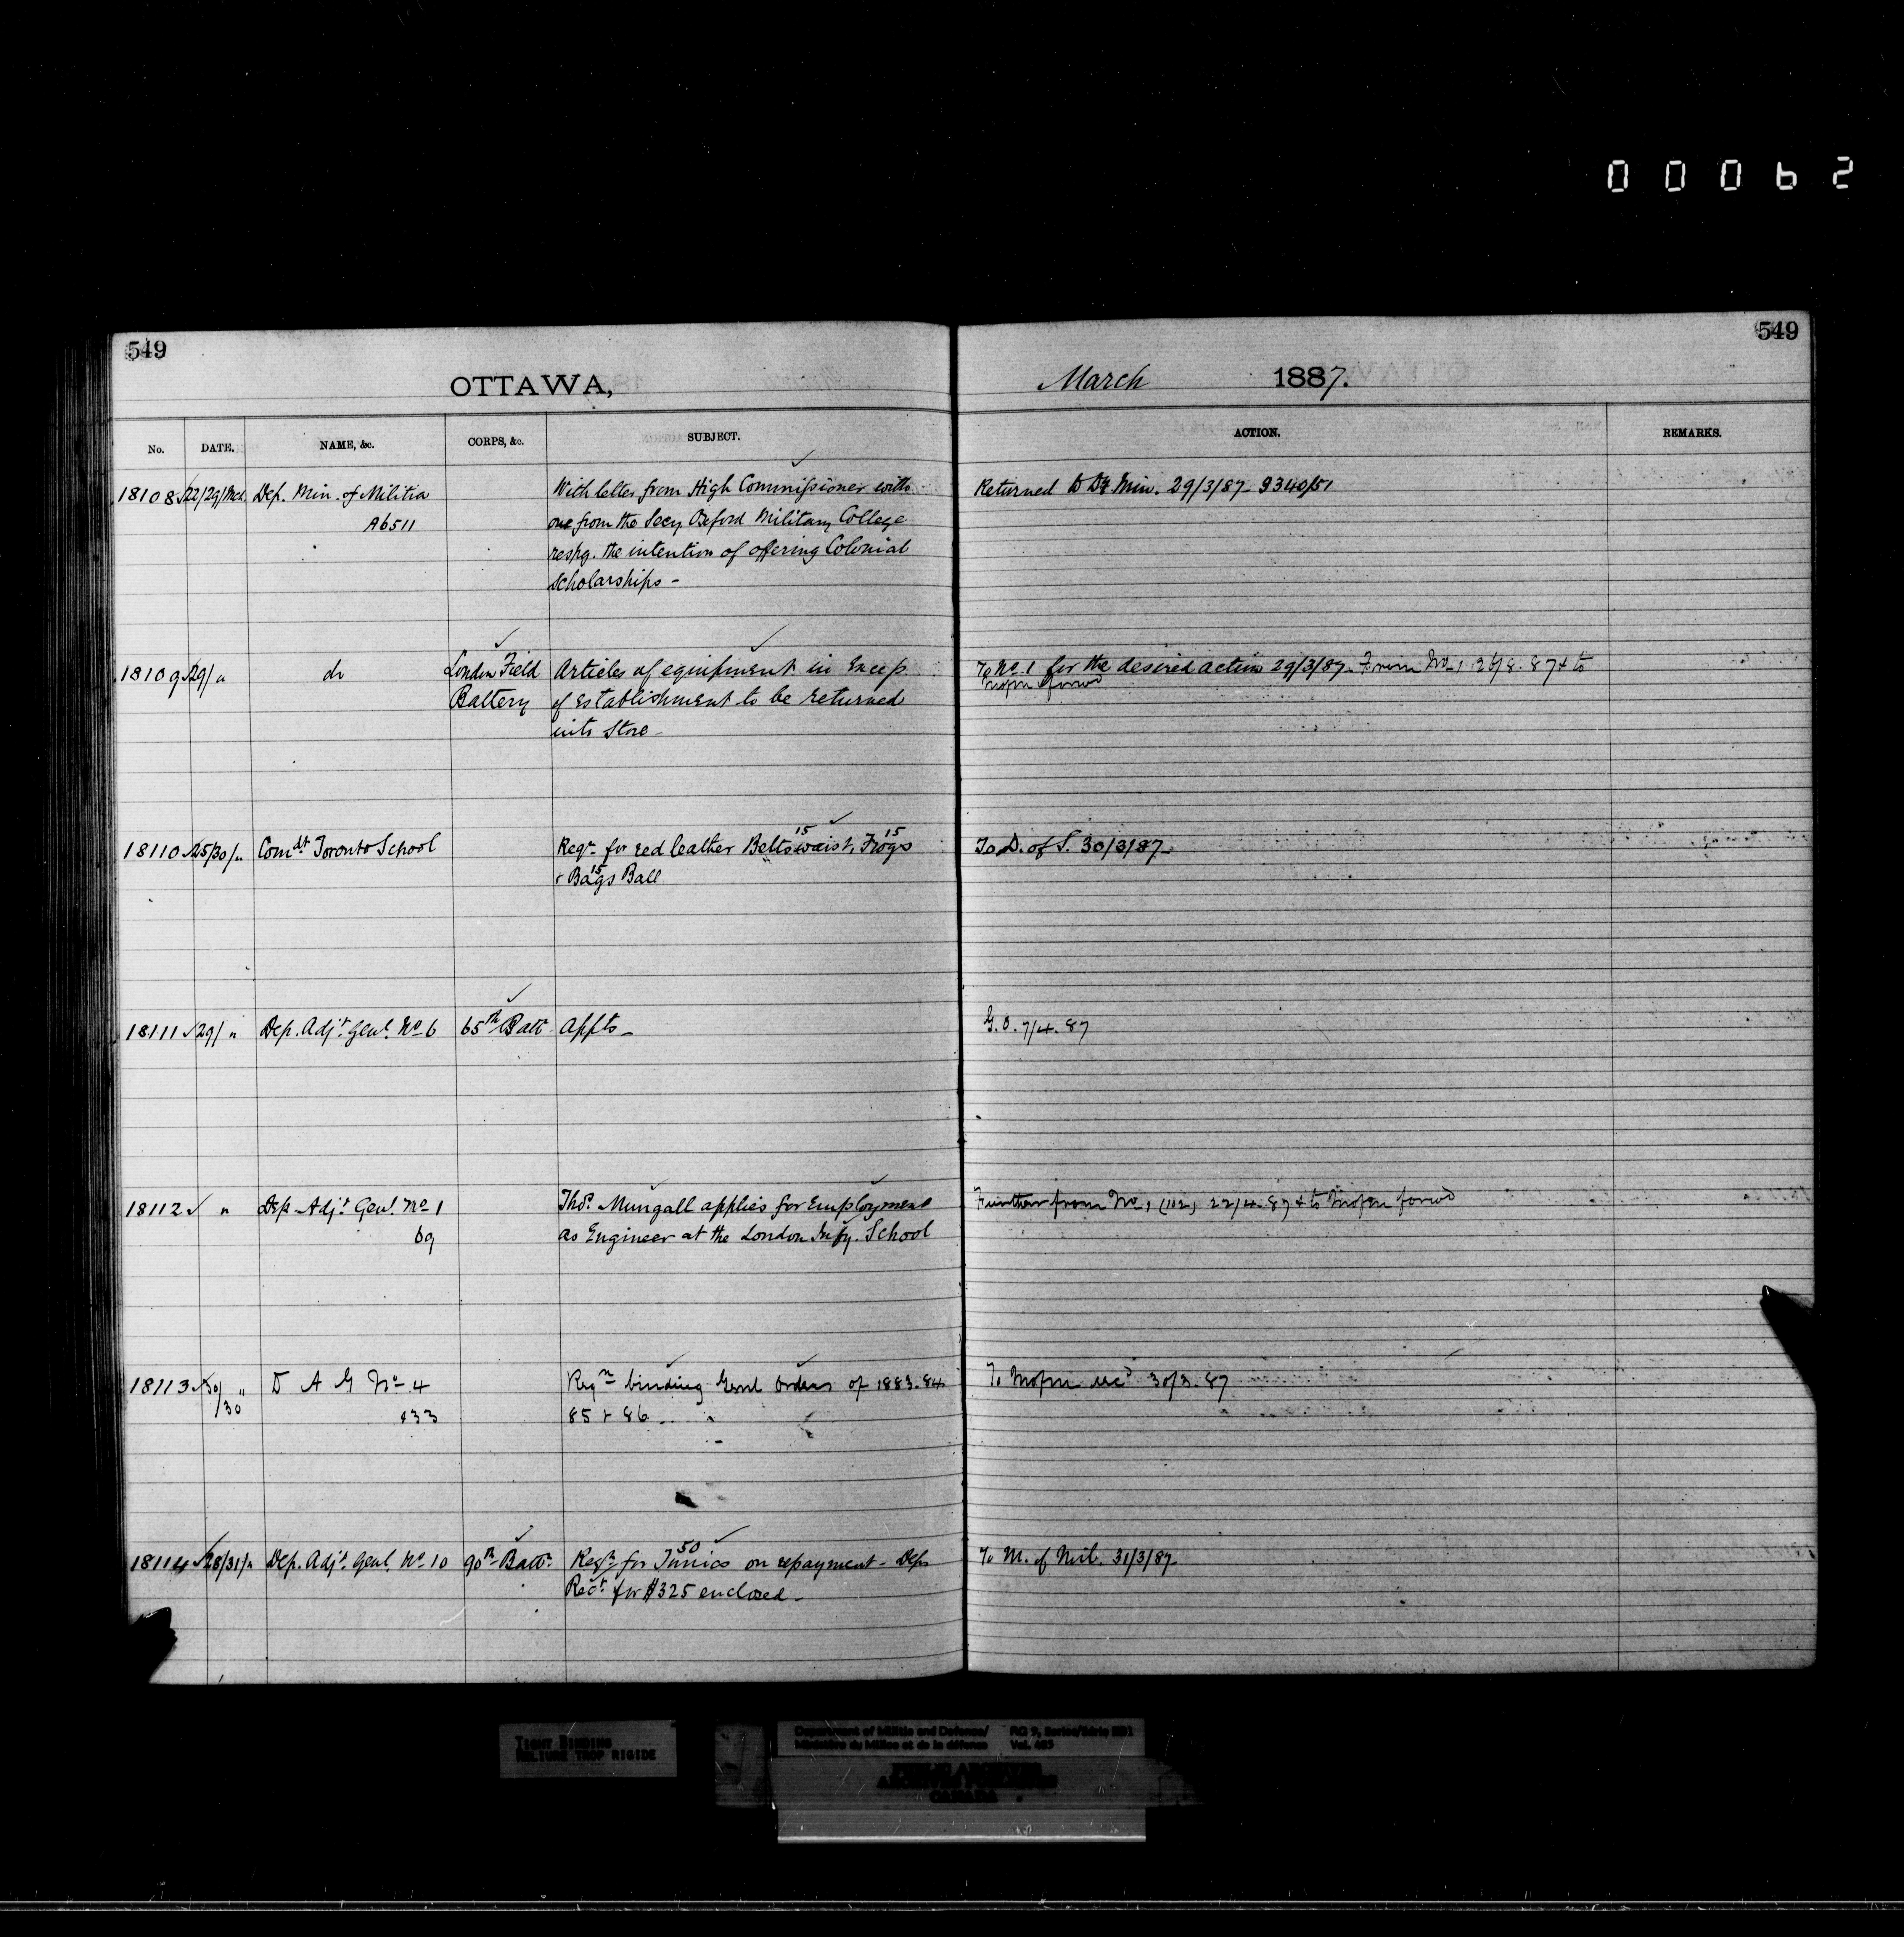 00062
549
549
OTTAWA,
March 1887.
No. DATE. NAME, &c. CORPS, &c. SUBJECT. ACTION. REMARKS.
18108 22/29/Mch. Dep. Min. of Militia With letter from High Commissioner with Returned to Dy Min. 29/3/87 - 9340/51
A6511 one from the Secy Oxford Military College
respg. the intention of offering Colonial
Scholarships -
18109 29/ " do London Field Articles of equipment in Excess To No. 1 for the desired action 29/3/87. From No 1 & to
Battery of Establishment to be returned
into Store -
18110 25/30/ " Comdt Toronto School Reqn for red leather Belts waist 15, Frogs 15 To D. of S. 30/3/87 -
& Bags 15 Ball
18111 29/ " Dep. Adjt. Genl. No 6 65th Batt Appts - G.O. 7/4.87
18112 " Dep. Adjt. Genl. No 1 Thos. Mungall applies for Employment Further from No 1 (112) 22/4.87 & to
69 as Engineer at the London Infy. School
18113 30/ " D A G No 4 Reqn binding Genl Orders of 1883.84 To 30/3.87
/30 133 85 & 86 -
18114 28/31/ " Dep. Adjt. Genl. No 10 90th Battn Reqn for 50 Tunics on repayment - Dep. To M. of Mil. 31/3/87 -
Rect for $325 enclosed -
TIGHT BINDING
RELIURE TROP RIGIDE
Department of Militia and Defence/ RG 9, Series/Série
Ministère du Milice et de la défense Vol.
PUBLIC ARCHIVES
ARCHIVES PUBLIQUES
CANADA